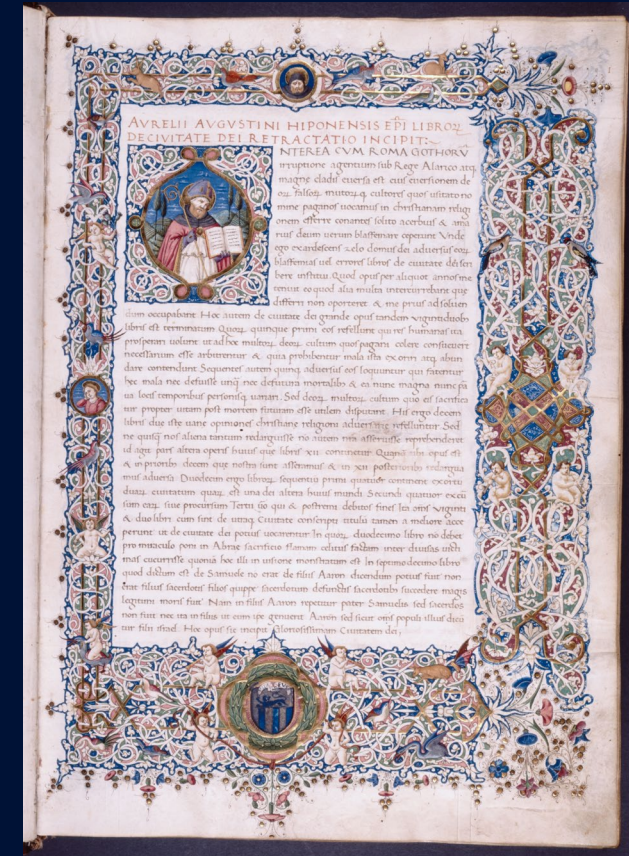 AVRELII AVGVSTINI HIPONENSIS EP̄I LIBROꝜ
DE CIVITATE DEI RETRACTATIO INCIPIT:
NTEREA CVM ROMA GOTHORV̄
irruptione agentium sub Rege Alarico atq
magne cladis euersa est eius euersionem de
oꝝ falsoꝝ multoꝝq cultores quos usitato no
mine paganos uocamus in christianam religi
onem efferre conantes solito acerbius & ama
rius deum uerum blasfemare ceperunt Vnde
ego exardescens zelo domus dei aduersus eoꝝ
blasfemias uel errores libros de ciuitate dei scri
bere institui Quod opus per aliquot annos me
tenuit eo quod alia multa intercurrebant que
differri non oporteret & me prius ad soluen
dum occupabant Hoc autem de ciuitate dei grande opus tandem uigintiduobꝰ
libris est terminatum Quoꝝ quinque primi eos refellunt qui res humanas ita
prosperari uolunt ut ad hoc multoꝝ deoꝝ cultum quos pagani colere consueuert
necessarium esse arbitrentur & quia prohibentur mala ista exoriri atq abun
dare contendunt Sequentes autem quinq aduersus eos loquuntur qui fatentur
hec mala nec defuisse unq nec defutura mortalibꝰ & ea nunc magna nunc pa
ua locis temporibus personisq uariari Sed deoꝝ multoꝝ cultum quo eis sacrifica
tur propter uitam post mortem futuram esse utilem disputant His ergo decem
libris due iste uane opiniones christiane religioni aduersarie refelluntur Sed
ne quisq nos aliena tantum redarguisse no autem nr̄a asseruisse reprehenderet
id agit pars altera operis huius que libris xii continetur Quanq ubi opus est
& in prioribꝰ decem que nostra sunt asseramus & in xii posterioribꝰ redargua
mus aduersa Duodecim ergo libroꝝ sequentiū primi quatuor continent exortū
duaꝝ ciuitatum quaꝝ est una dei altera huius mundi Secundi quatuor excū
sum eaꝝ siue procursum Tertii ūo qui & postremi debitos fines Ita oīs Viginti
& duo libri cum sint de utraq Ciuitate conscripti titulū tamen a meliore acce
perunt ut de ciuitate dei potius uocarentur In quoꝝ duodecimo libro nō debet
pro miraculo poni in Abrae sacrificio flamam celitus factam inter diuisas uicti
mas cucurrisse quoniā hoc illi in uisione monstratum est In septimodecimo libro
quod dictum est de Samuele no erat de filiis Aaron dicendum potius fuit non
erat filius sacerdotis filios quippe sacerdotum defunctis sacerdotibꝰ succedere magis
legitimi moris fuit Nam in filiis Aaron reperitur pater Samuelis sed sacerdos
non fuit nec ita in filiis ut eum ipe genuerit Aaron sed sicut oms̄ populi illius dicū
tur filii israel Hoc opus sic incipit Gloriosissimam Ciuitatem dei;